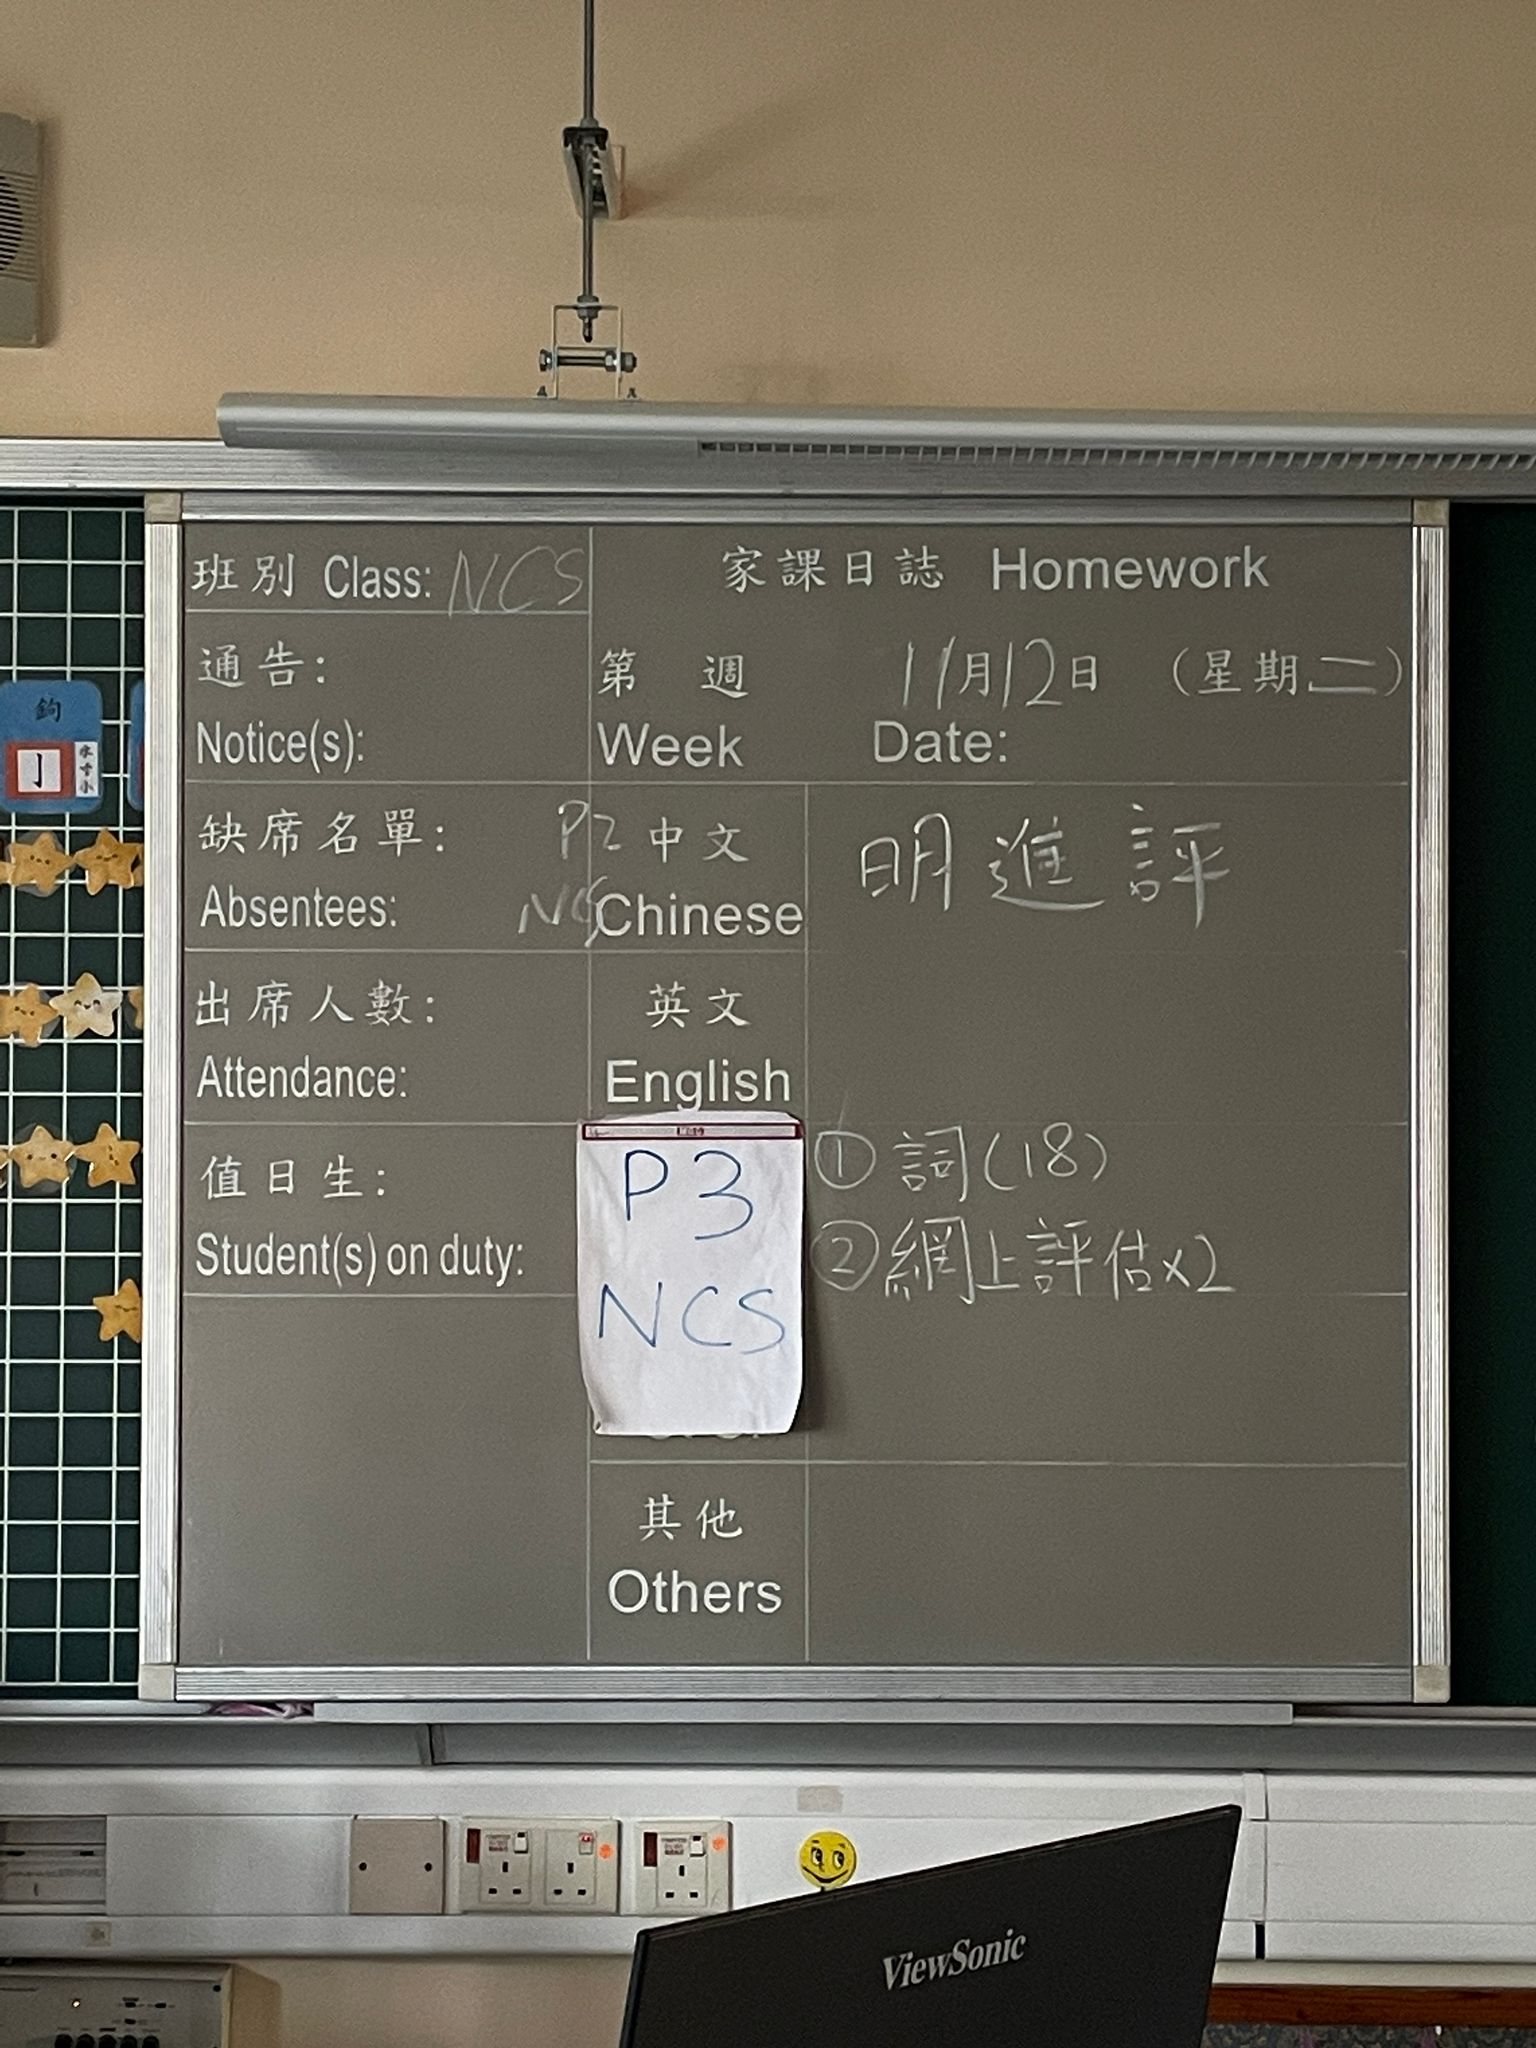 班別 Class: NCS
家課日誌 Homework
通告:
Notice(s):
第 週 11月12日 (星期二)
Week Date:
缺席名單:
Absentees:
P2
NCS
中文
Chinese
明進評
出席人數:
Attendance:
英文
English
值日生:
Student(s) on duty:
P3
NCS
① 詞(18)
② 網上評估x2
其他
Others
鉤
亅
水
寸
小
ViewSonic